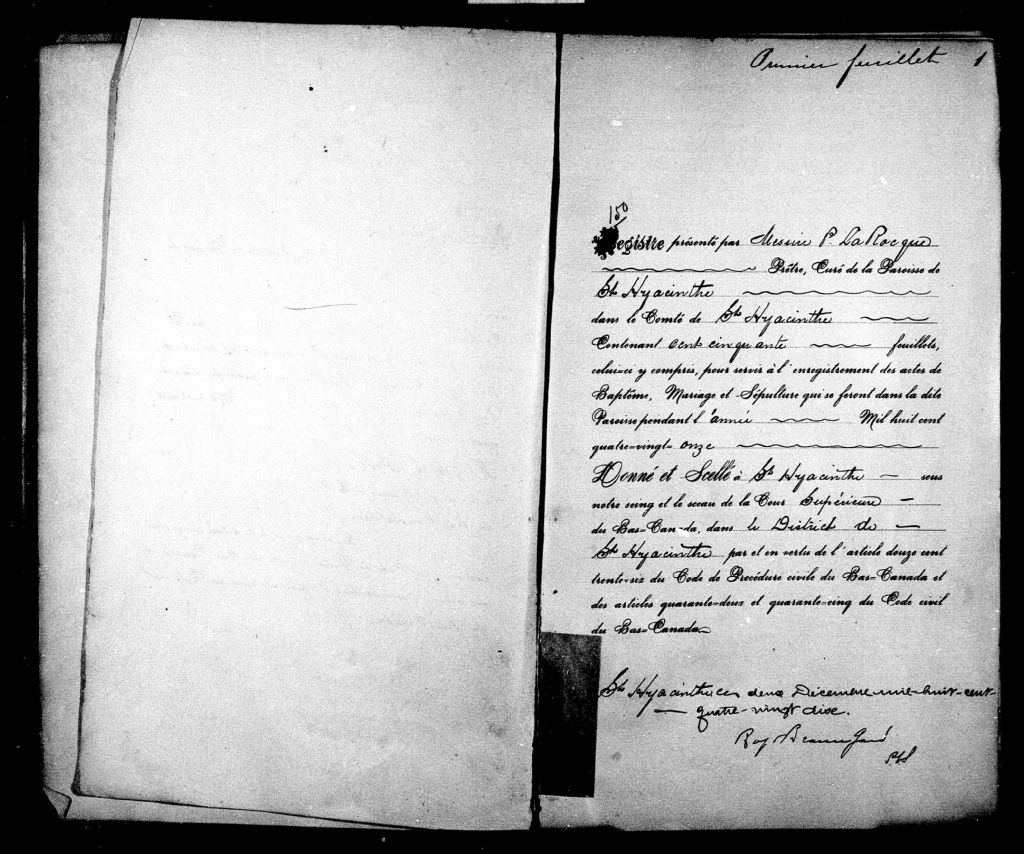 Premier feuillet 1
150
Registre présenté par Messire P. LaRocque
Prêtre, Curé de la Paroisse de
St Hyacinthe
dans le Comté de St Hyacinthe
Contenant cent cinquante feuillets,
celui-ci y compris, pour servir à l'enregistrement des actes de
Baptême, Mariage et Sépulture qui se feront dans la dite
Paroisse pendant l'année Mil huit cent
quatre-vingt-onze
Donné et Scellé à St Hyacinthe sous
notre seing et le sceau de la Cour Supérieure
du Bas-Canada, dans le District de
St Hyacinthe par et en vertu de l'article douze cent
trente-six du Code de Procédure civile du Bas-Canada et
des articles quarante-deux et quarante-cinq du Code civil
du Bas-Canada
St Hyacinthe ce deux Décembre mil-huit-cent-
quatre-vingt dix.
Roy Beauregard
P.C.S